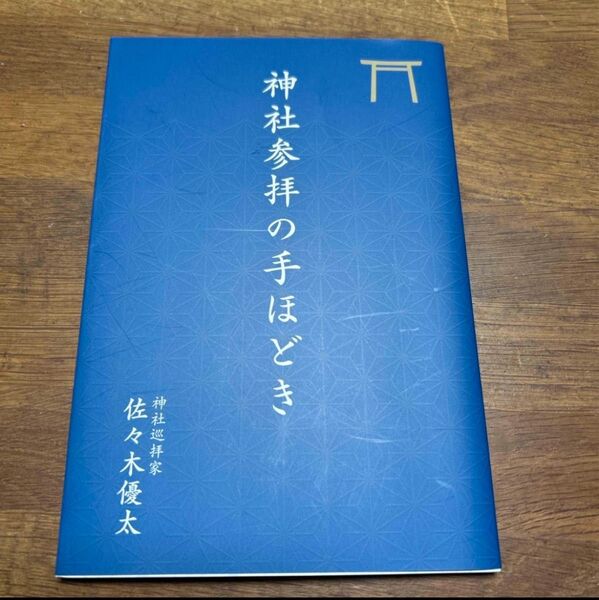 神社参拝の手ほどき
神社巡拝家
佐々木優太